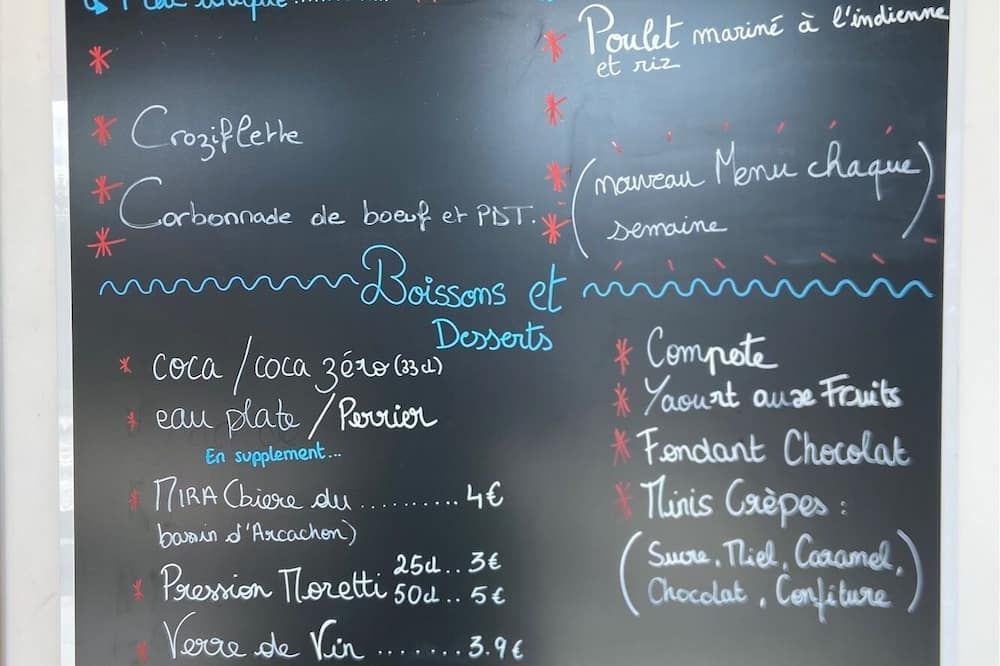 Plat unique
Croziflette
Carbonnade de boeuf et PDT.
Poulet mariné à l'indienne
et riz
(nouveau Menu chaque
semaine)
Boissons et
Desserts
coca / coca zéro (33cl)
eau plate / Perrier
En supplement...
MIRA (biere du .......... 4€
bassin d'Arcachon)
Pression Moretti 25cl.. 3€
50cl.. 5€
Verre de Vin ....... 3.9€
Compote
Yaourt aux Fruits
Fondant Chocolat
Minis Crèpes :
(Sucre, Miel, Caramel,
Chocolat, Confiture)